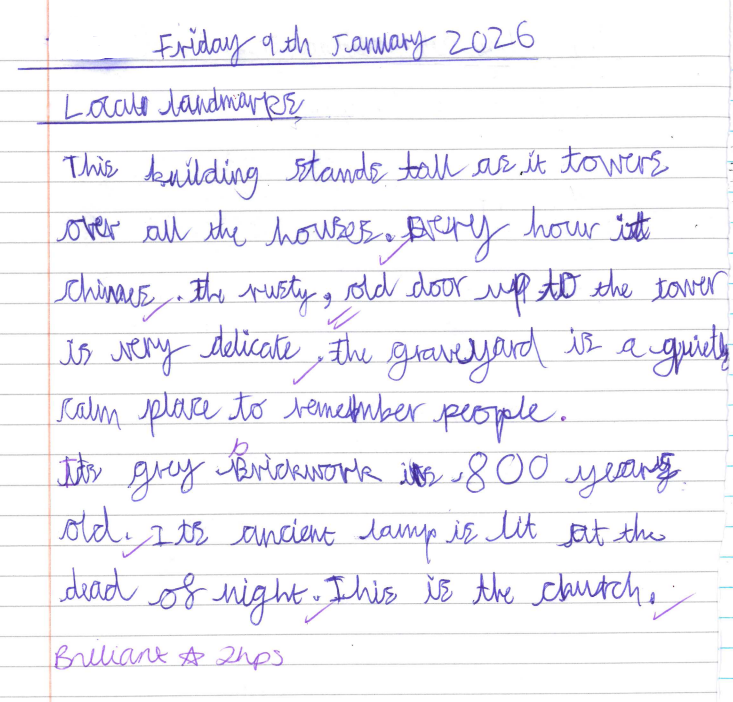 Friday 9th January 2026
Local landmarks
This building stands tall as it towers
over all the houses. Every hour it
chimes. The rusty, old door up to the tower
is very delicate. The graveyard is a quietly
calm place to remember people.
Its grey Brickwork is 800 years
b
old. Its ancient lamp is lit at the
dead of night. This is the church.
Brilliant ☆ 2hps